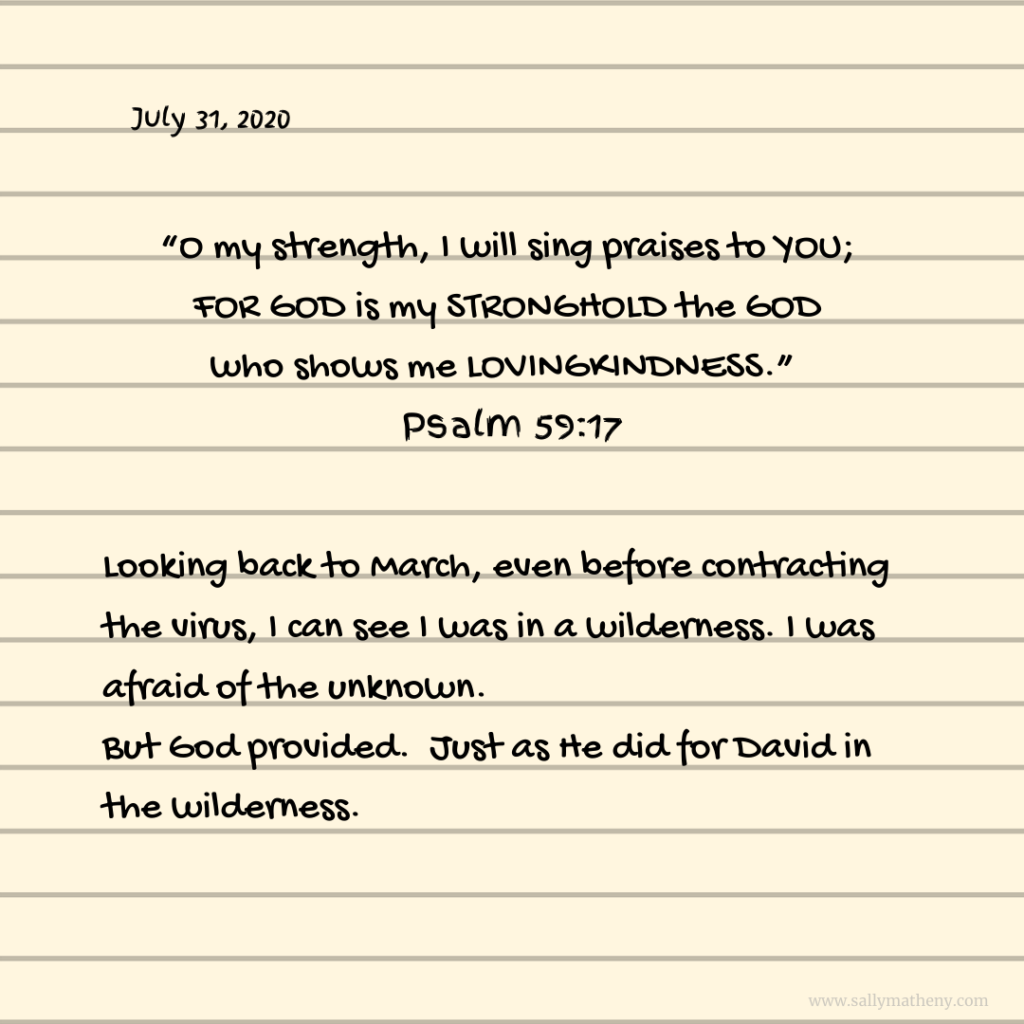 July 31, 2020
"O my strength, I will sing praises to YOU;
FOR GOD is my STRONGHOLD the GOD
who shows me LOVINGKINDNESS."
Psalm 59:17
Looking back to March, even before contracting
the virus, I can see I was in a wilderness. I was
afraid of the unknown.
But God provided.  Just as He did for David in
the wilderness.
www.sallymatheny.com